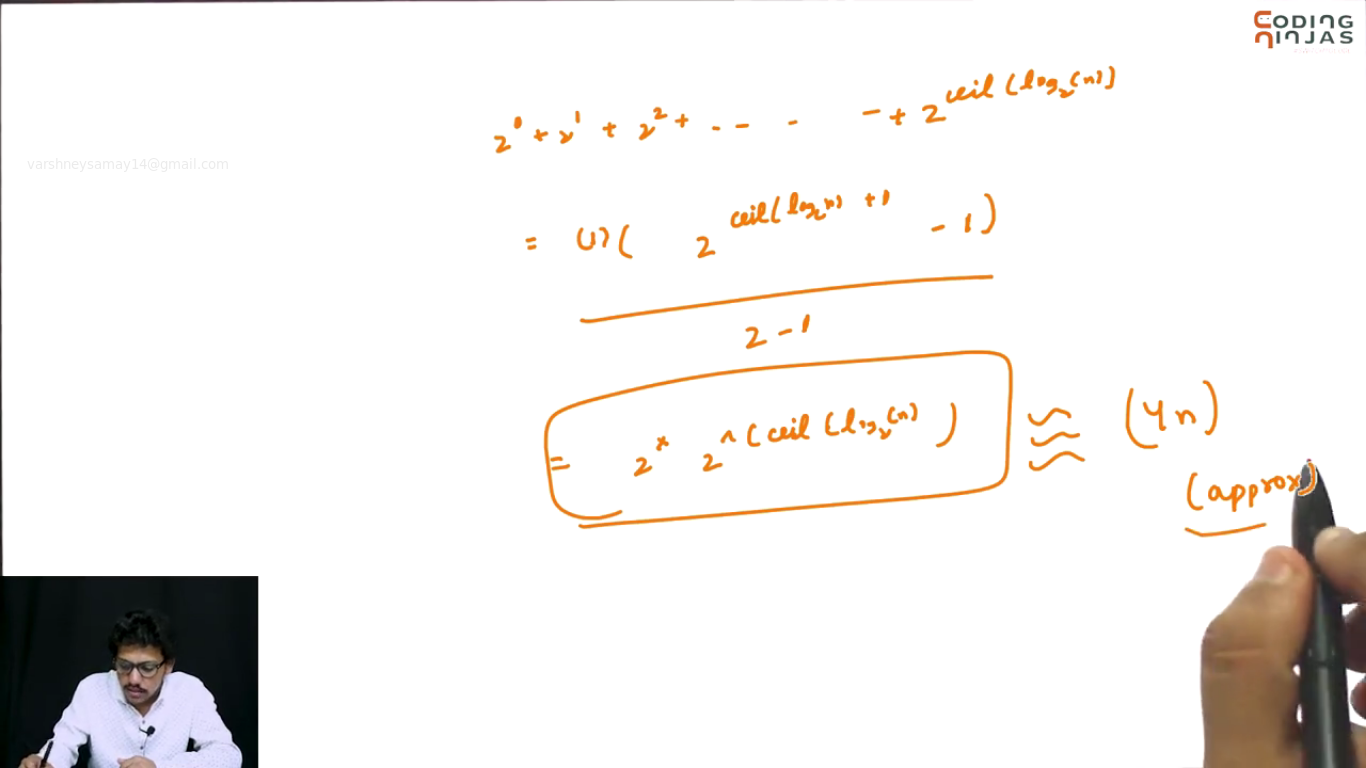 CODING
NINJAS
varshneysamay14@gmail.com
2^0 + 2^1 + 2^2 + -- - - + 2^ceil(log_2(n))
= (1)( 2^ceil(log_2 n) +1 - 1)
2 - 1
= 2 * 2 ^ (ceil (log_2(n) ) ≈ (4n)
(approx)